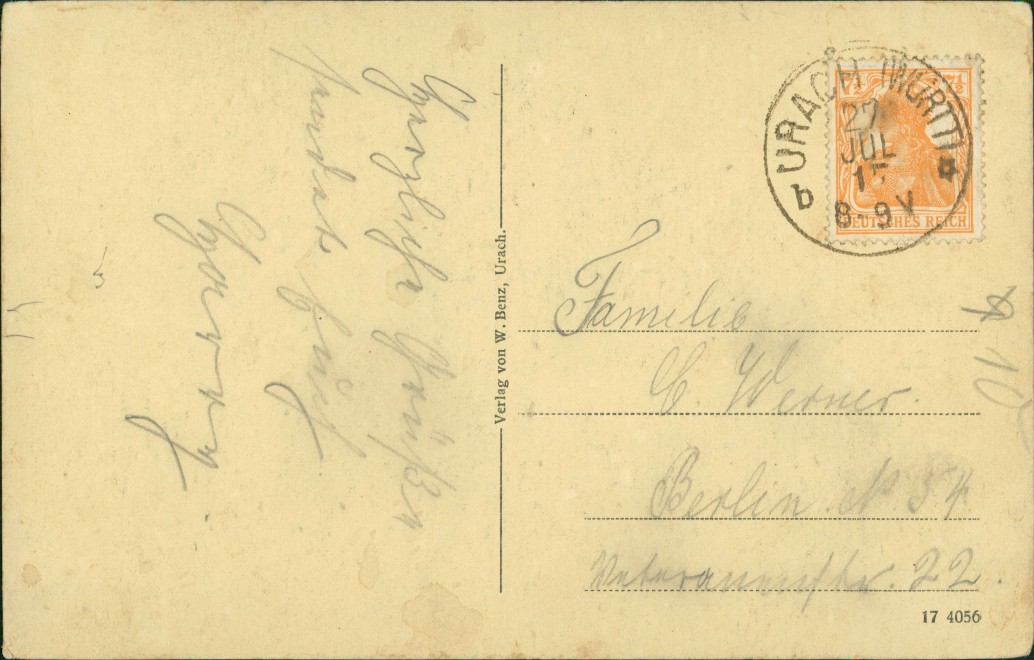 Herzliche Grüße
sendet Euch
Georg
Verlag von W. Benz, Urach.
URACH (WÜRTT)
27
JUL
15
8-9 V
b
7½ 7½
DEUTSCHES REICH
Familie
C. Werner.
Berlin. N 54
Veteranenstr. 22.
10
17 4056